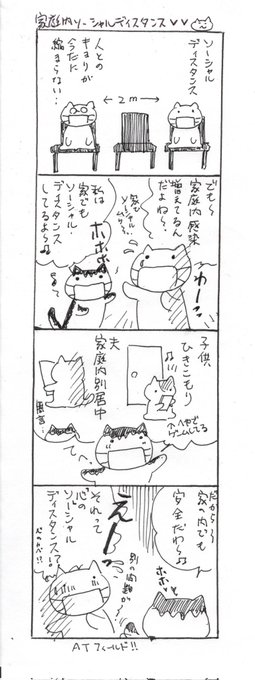 家庭内ソーシャルディスタンス♥♥
ソーシャル
ディスタンス
←2m→
人との
キョリが
今だに
縮まらない…
でも〜
家庭内感染
増えてるん
だよね〜
わー
家で
ソーシャル
ホホホ
私は
家でも
ソーシャル・
ディスタンス
してるよ〜♫
子供
ひきこもり
へやで
ゲームしてる
夫
家庭内別居中
だから〜
家の内でも
安全だわ〜♫
ホホホ
えー
別の問題が
それって
"心"の
ソーシャル
ディスタンスでは
ATフィールド!!